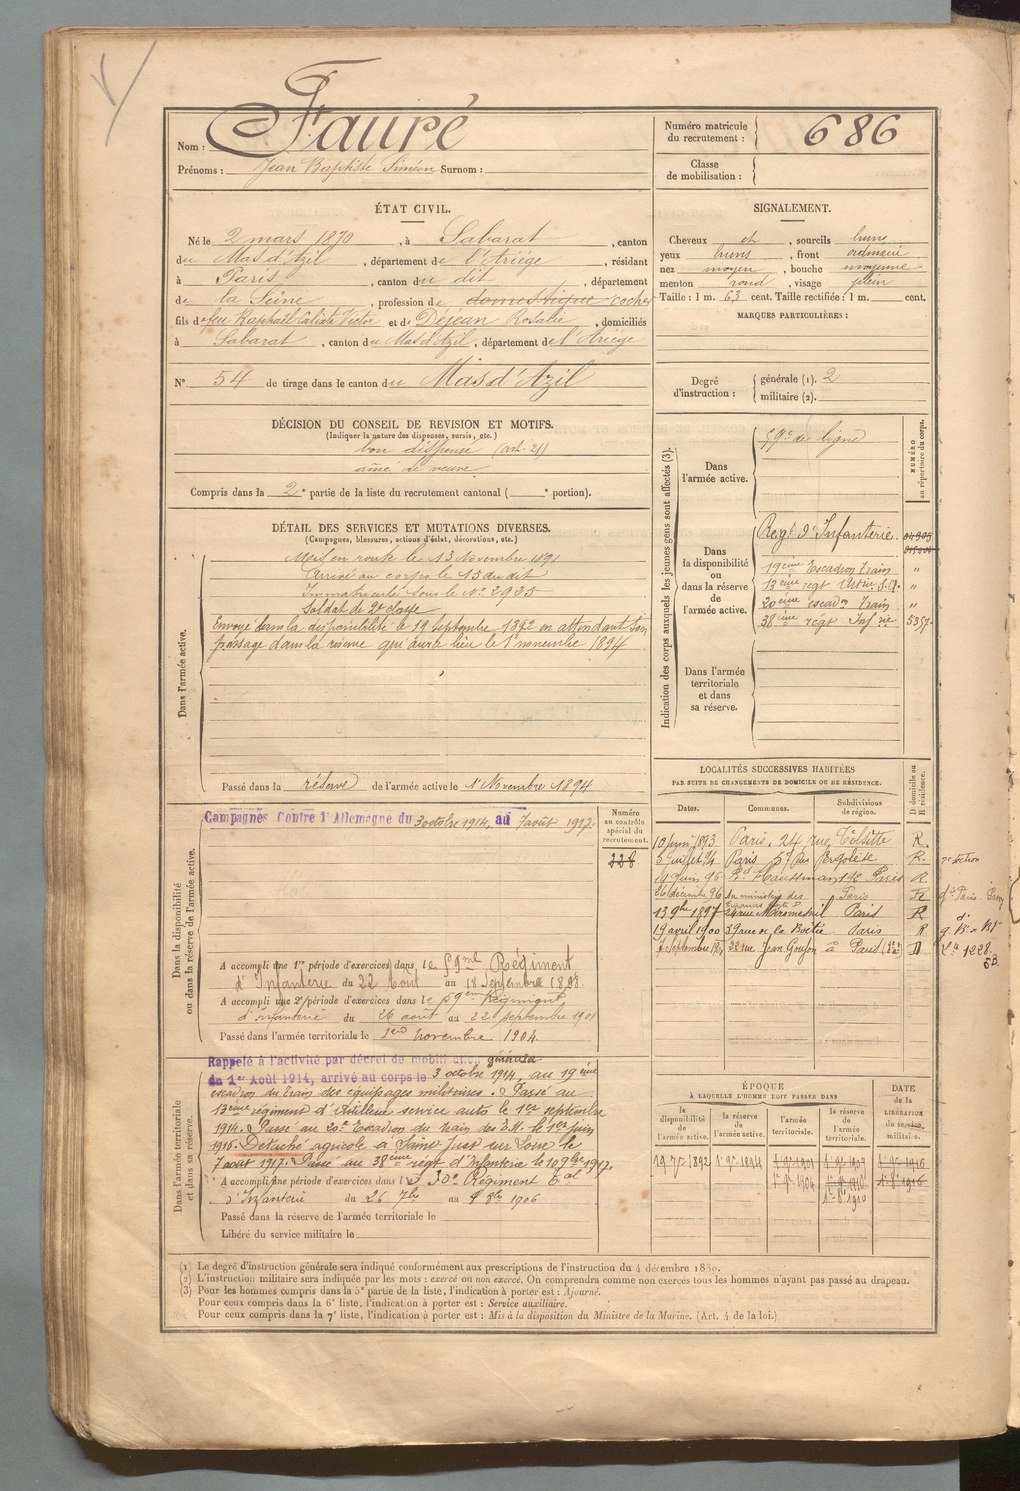 Nom : Fauré
Prénoms : Jean Baptiste Siméon Surnom :
Numéro matricule du recrutement : 686
Classe de mobilisation :
ÉTAT CIVIL.
Né le 2 mars 1870, à Sabarat, canton
du Mas d'Azil, département de l'Ariége, résidant
à Paris, canton du dit, département
de la Seine, profession de domestique cocher
fils de feu Raphaël Calixte Victor et de Déjean Rosalie, domiciliés
à Sabarat, canton du Mas d'Azil, département de l'Ariége
N° 54 de tirage dans le canton du Mas d'Azil
SIGNALEMENT.
Cheveux et, sourcils bruns
yeux bruns, front ordinaire
nez moyen, bouche moyenne
menton rond, visage plein
Taille : 1 m. 63 cent. Taille rectifiée : 1 m. cent.
MARQUES PARTICULIÈRES :
Degré d'instruction : générale (1). 2
militaire (2).
DÉCISION DU CONSEIL DE REVISION ET MOTIFS.
(Indiquer la nature des dispenses, sursis, etc.)
bon dispensé (art. 21)
ainé de veuve
Compris dans la 2e partie de la liste du recrutement cantonal ( e portion).
DÉTAIL DES SERVICES ET MUTATIONS DIVERSES.
(Campagnes, blessures, actions d'éclat, décorations, etc.)
Dans l'armée active.
Mis en route le 13 Novembre 1891
Arrivé au corps le 15 du dit
Immatriculé sous le N° 2925
Soldat de 2e classe
Envoyé dans la disponibilité le 19 Septembre 1892 en attendant son
passage dans la réserve qui aura lieu le 1er novembre 1894
Passé dans la réserve de l'armée active le 1r Novembre 1894
Indication des corps auxquels les jeunes gens sont affectés (3).
NUMÉRO au répertoire du corps.
Dans l'armée active.
59e de ligne
Dans la disponibilité ou dans la réserve de l'armée active.
Regt d'Infanterie.
19ème Escadron Train "
13ème regt Artie "
20ème escadn Train "
38ème régt Infrie 5357
Dans l'armée territoriale et dans sa réserve.
Dans la disponibilité ou dans la réserve de l'armée active.
Campagnes Contre l'Allemagne du 3 octobre 1914, au 7 août 1917.
Numéro au contrôle spécial du recrutement.
228
A accompli une 1re période d'exercices dans le 59me Régiment
d'Infanterie du 22 Août au 18 Septembre 1898
A accompli une 2e période d'exercices dans le 59eme Régiment
d'infanterie du 26 août au 22 septembre 1901
Passé dans l'armée territoriale le 1er novembre 1904.
LOCALITÉS SUCCESSIVES HABITÉES
PAR SUITE DE CHANGEMENTS DE DOMICILE OU DE RÉSIDENCE.
Dates. Communes. Subdivisions de région. D domicile ou R résidence.
1893 Paris. 24 rue Tilsitte R.
5 juillet 94 Paris 57 rue Pergolèse R.
Juin 96 Bd Haussman 192 Paris R.
26 décembre 96 au ministère des Paris R
13 9bre 1897 24 rue Miromesnil Paris R
19 avril 1900 39 rue de la Boëtie Paris R
Septembre 1901 32 rue Jean Goujon à Paris D
Dans l'armée territoriale et dans sa réserve.
Rappelé à l'activité par décret de mobilisation générale
du 1er Août 1914, arrivé au corps le 3 octobre 1914, au 19ème
escadron du train des équipages militaires. Passé au
13ème régiment d'Artillerie service auto le 1er septembre
1914. Passé au 20e Escadron du train des E.M. le 1er juin
1916. Détaché agricole à Saint Just sur Loire le
7 août 1917. Passé au 38ème régt d'Infanterie le 10 9bre 1917.
A accompli une période d'exercices dans le 30e Régiment Tal
d'Infanterie du 26 7bre au 8bre 1906
Passé dans la réserve de l'armée territoriale le
Libéré du service militaire le
ÉPOQUE
À LAQUELLE L'HOMME DOIT PASSER DANS
la disponibilité de l'armée active. la réserve de l'armée active. l'armée territoriale. la réserve de l'armée territoriale.
DATE de la LIBÉRATION du service militaire.
19 7bre 1892 1er 9bre 1894 1904
(1) Le degré d'instruction générale sera indiqué conformément aux prescriptions de l'instruction du 4 décembre 1889.
(2) L'instruction militaire sera indiquée par les mots : exercé ou non exercé. On comprendra comme non exercés tous les hommes n'ayant pas passé au drapeau.
(3) Pour les hommes compris dans la 5e partie de la liste, l'indication à porter est : Ajourné.
Pour ceux compris dans la 6e liste, l'indication à porter est : Service auxiliaire.
Pour ceux compris dans la 7e liste, l'indication à porter est : Mis à la disposition du Ministre de la Marine. (Art. 4 de la loi.)